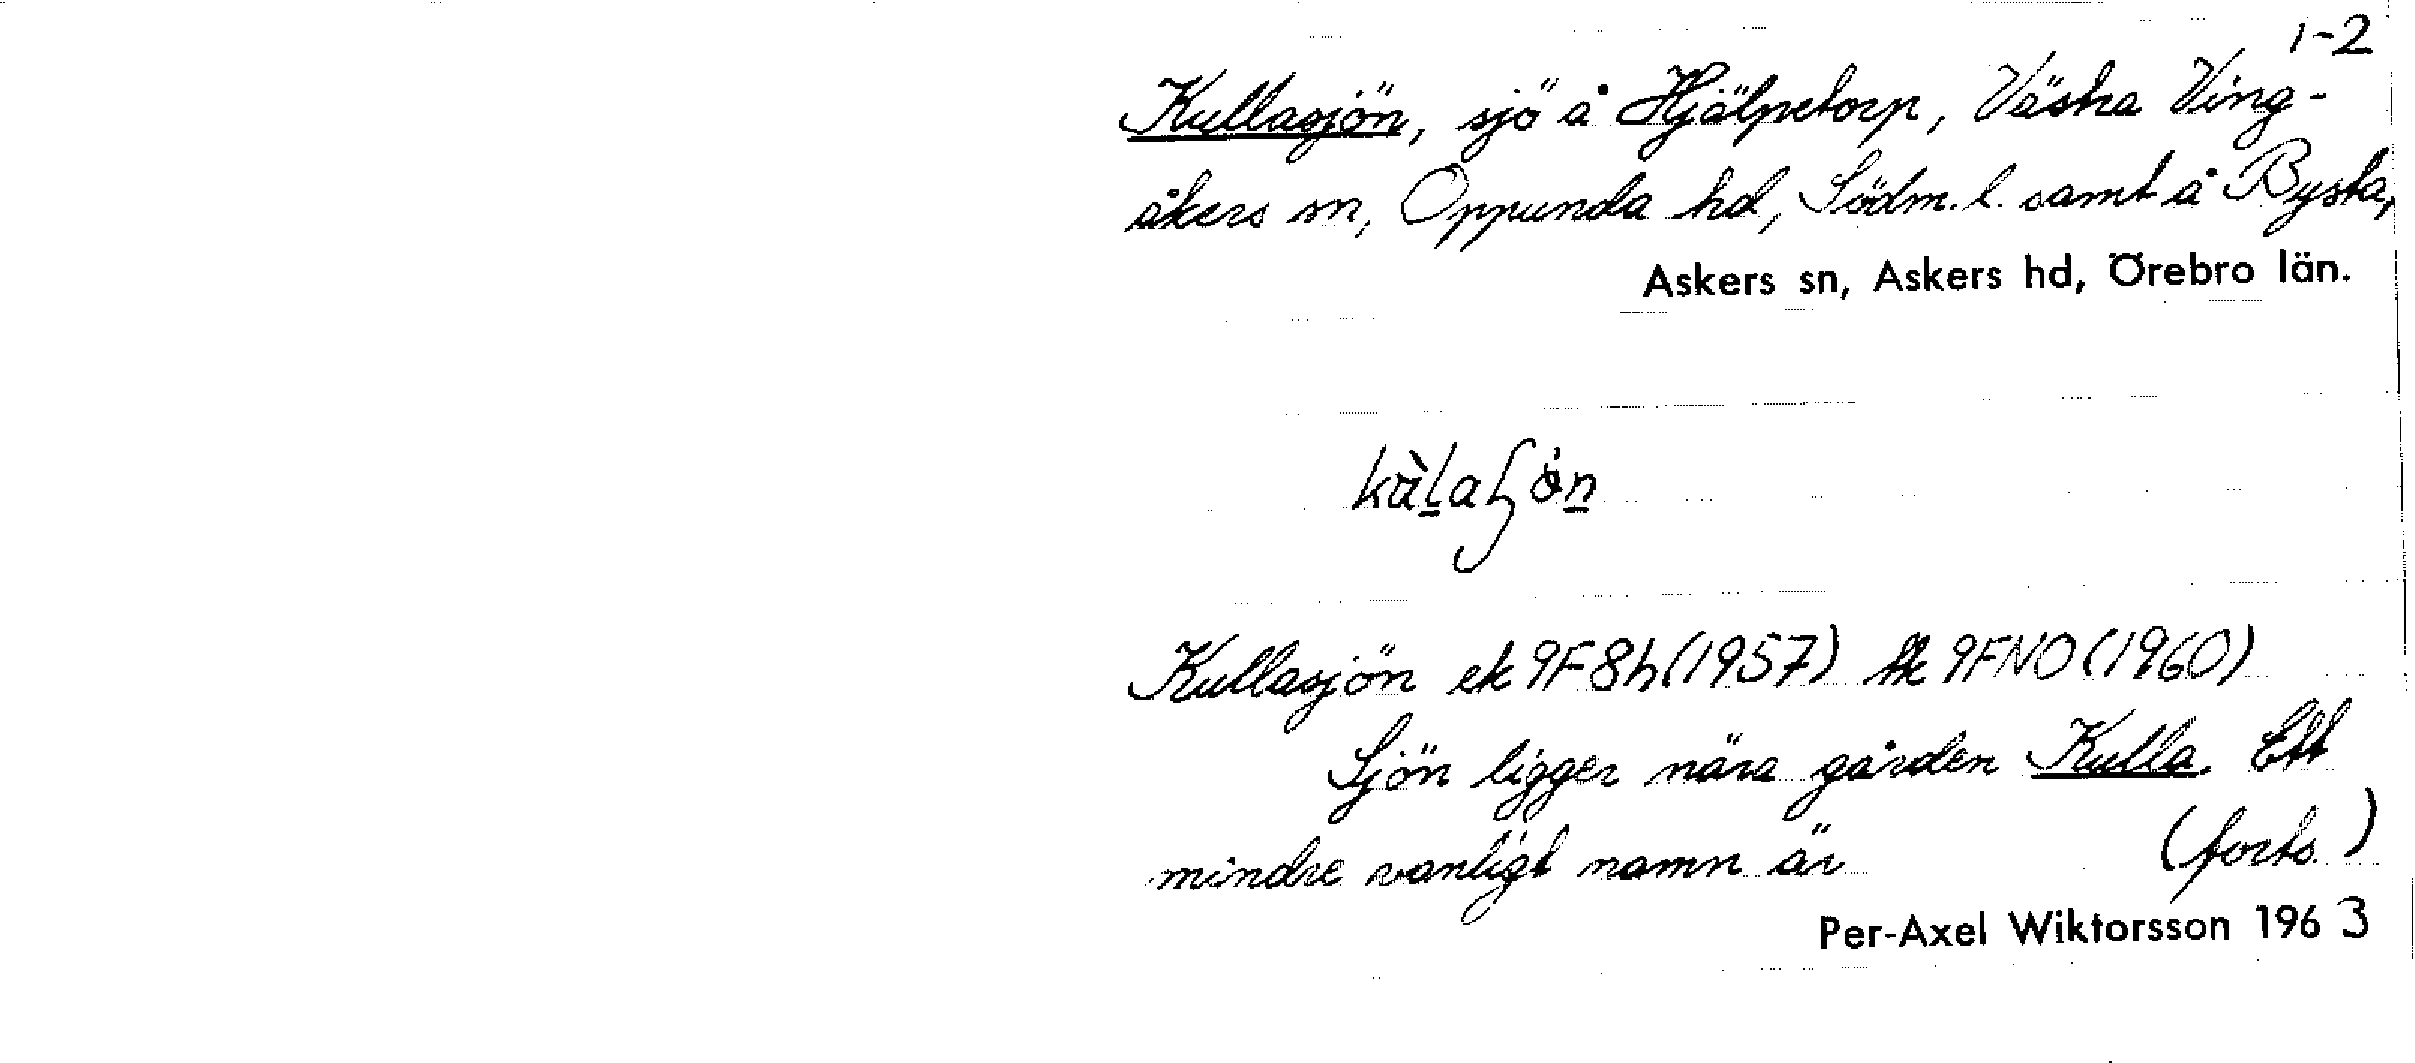 1-2
Kullasjön, sjö å Hjälpetorp, Västra Ving-
åkers sn, Oppunda hd, Södm. l. samt å Bysta,
Askers sn, Askers hd, Örebro län.
Kullasjön ek 9F8h (1957) tk 9FNO (1960)
Sjön ligger nära gården Kulla. Ett
mindre vanligt namn är (forts.)
Per-Axel Wiktorsson 1963